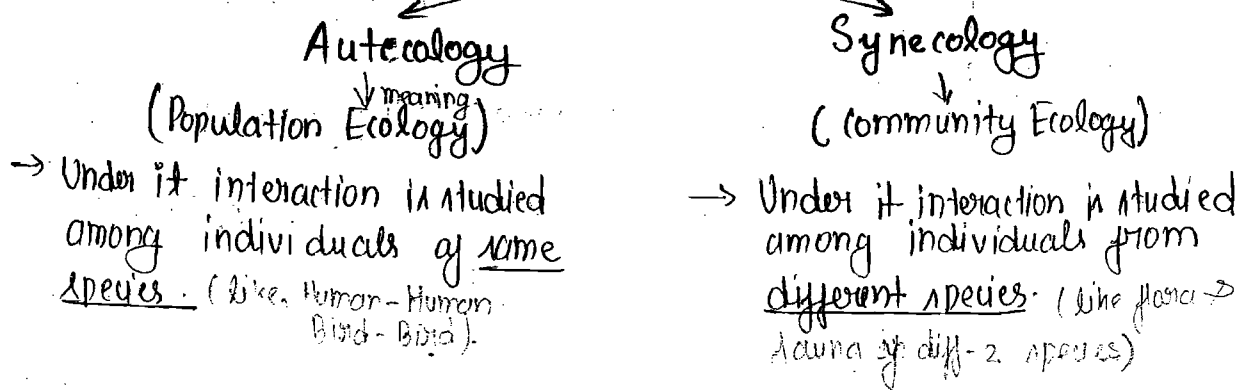 Autecology
↓ meaning
(Population Ecology)
→ Under it interaction is studied
among individuals of same
species. (like, Human-Human
Bird-Bird).
Synecology
↓
(Community Ecology)
→ Under it interaction is studied
among individuals from
different species. (like flora →
fauna of diff-2 species)